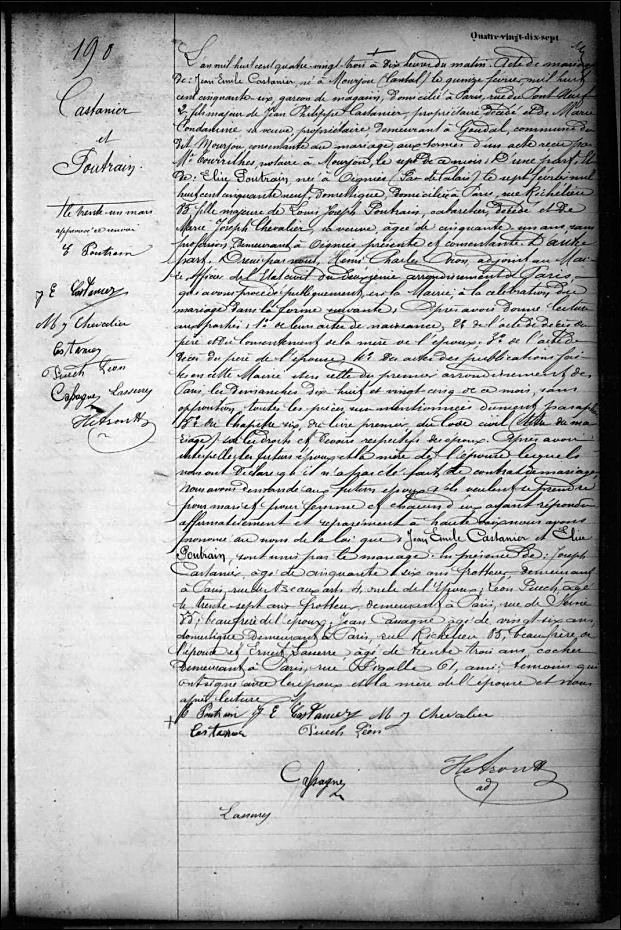 Quatre-vingt-dix-sept
190
Castanier
et
Poutrain.
Le trente-un mars
approuvé ce renvoi
E Poutrain
J E Castanier
M J Chevalier
Castanier
Puech Léon
Cassagne Lasserre
L'an mil huit cent quatre-vingt-trois à dix heures du matin. Acte de mariage
de : Jean Emile Castanier, né à Mourjou (Cantal) le quinze février mil huit
cent cinquante-six, garçon de magasin, domicilié à Paris, rue du Pont Neuf
2, fils majeur de Jean Philippe Castanier, propriétaire décédé et de Marie
Condamine sa veuve propriétaire demeurant à Goudal, commune du
dit Mourjou, consentante au mariage aux termes d'un acte reçu par
Me notaire à Mourjou, le sept de ce mois ; D'une part. Et
de : Elise Poutrain, née à Oignies (Pas de Calais) le sept février mil
huit cent cinquante neuf, domestique domiciliée à Paris, rue Richelieu
85, fille majeure de Louis Joseph Poutrain, cabaretier, décédé et de
Marie Joseph Chevalier sa veuve, âgée de cinquante un ans, sans
profession, demeurant à Oignies présente et consentante D'autre
part. Dressé par nous, Henri Charles adjoint au Mai-
re, officier de l'Etat civil du deuxième arrondissement de Paris,
qui avons procédé publiquement, en la Mairie, à la célébration du
mariage dans la forme suivante ; Après avoir donné lecture
aux parties : 1° de leurs actes de naissance, 2° de l'acte de décès du
père et du consentement de la mère de l'époux, 3° de l'acte de
décès du père de l'épouse, 4° des actes des publications fai-
tes en cette Mairie et en celle du premier arrondissement de
Paris, les Dimanches dix huit et vingt-cinq de ce mois, sans
opposition, toutes les pièces sus mentionnées dûment paraphées
5° du chapitre six, du livre premier du Code civil (titre du ma-
riage) sur les droits et devoirs respectifs des époux. Après avoir
interpellé les futurs époux et la mère de l'épouse lesquels
nous ont déclaré qu'il n'a pas été fait de contrat de mariage
Nous avons demandé aux futurs époux s'ils veulent se prendre
pour mari et pour femme et chacun d'eux ayant répondu
affirmativement et séparément à haute voix, nous avons
prononcé au nom de la loi que : Jean Emile Castanier et Elise
Poutrain, sont unis par le mariage. En présence de : Joseph
Castanier, âgé de cinquante six ans, frotteur, demeurant
à Paris, rue des Beaux arts 4, oncle de l'époux ; Léon Puech, âgé
de trente-sept ans, frotteur, demeurant à Paris, rue de Seine
beau frère de l'époux ; Jean Cassagne, âgé de vingt-six ans
domestique demeurant à Paris, rue Richelieu 85, beau frère de
l'épouse et Ernest Lasserre âgé de trente trois ans, cocher
demeurant à Paris, rue Pigalle 61, ami ; témoins qui
ont signé avec les époux et la mère de l'épouse et nous
après lecture
E Poutrain J E Castanier M J Chevalier
Castanier Puech Léon
Cassagne
adj
Lasserre